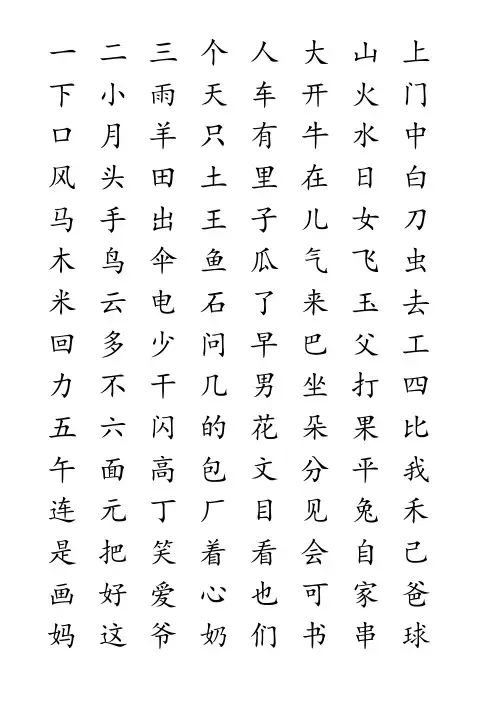 一 二 三 个 人 大 山 上
下 小 雨 天 车 开 火 门
口 月 羊 只 有 牛 水 中
风 头 田 土 里 在 日 白
马 手 出 王 子 儿 女 刀
木 鸟 伞 鱼 瓜 气 飞 虫
米 云 电 石 了 来 玉 去
回 多 少 问 早 巴 父 工
力 不 干 几 男 坐 打 四
五 六 闪 的 花 朵 果 比
午 面 高 包 文 分 平 我
连 元 丁 厂 目 见 兔 禾
是 把 笑 着 看 会 自 己
画 好 爱 心 也 可 家 爸
妈 这 爷 奶 们 书 串 球